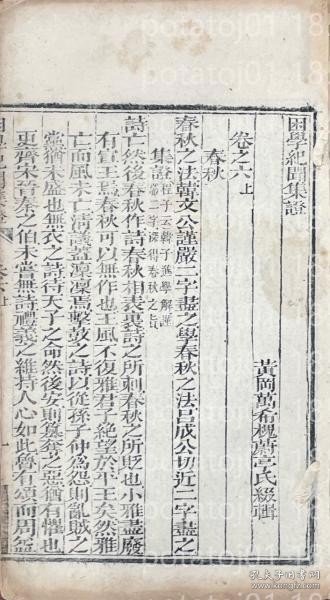 困學紀聞集證
黃岡萬希槐蔚亭氏綴輯
卷之六上
春秋
春秋之法韓文公謹嚴二字盡之學春秋之法呂成公切近二字盡之
集證 程子云韓子進學解謹
嚴二字深得春秋之旨
詩亡然後春秋作詩春秋相表裏詩之所刺春秋之所貶也小雅盡廢
有宣王焉春秋可以無作也王風不復雅君子絕望於平王矣然雅
亡而風未亡清議蓋凜凜焉擊鼓之詩以從孫子仲為怨則亂賊之
黨猶未盛也無衣之詩待天子之命然後安則篡奪之惡猶有懼也
更齊宋晉秦之伯未嘗無詩禮義之維持人心如此魯有頌而周益
potatoj0118
孔夫子旧书网